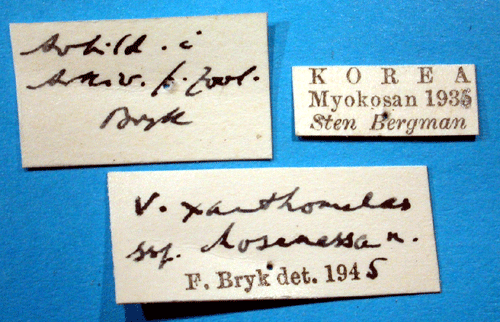 Avbild. i
Arkiv. f. Zool.
Bryk
KOREA
Myokosan 1935
Sten Bergman
V. xanthomelas
ssp. n.
F. Bryk det. 1945